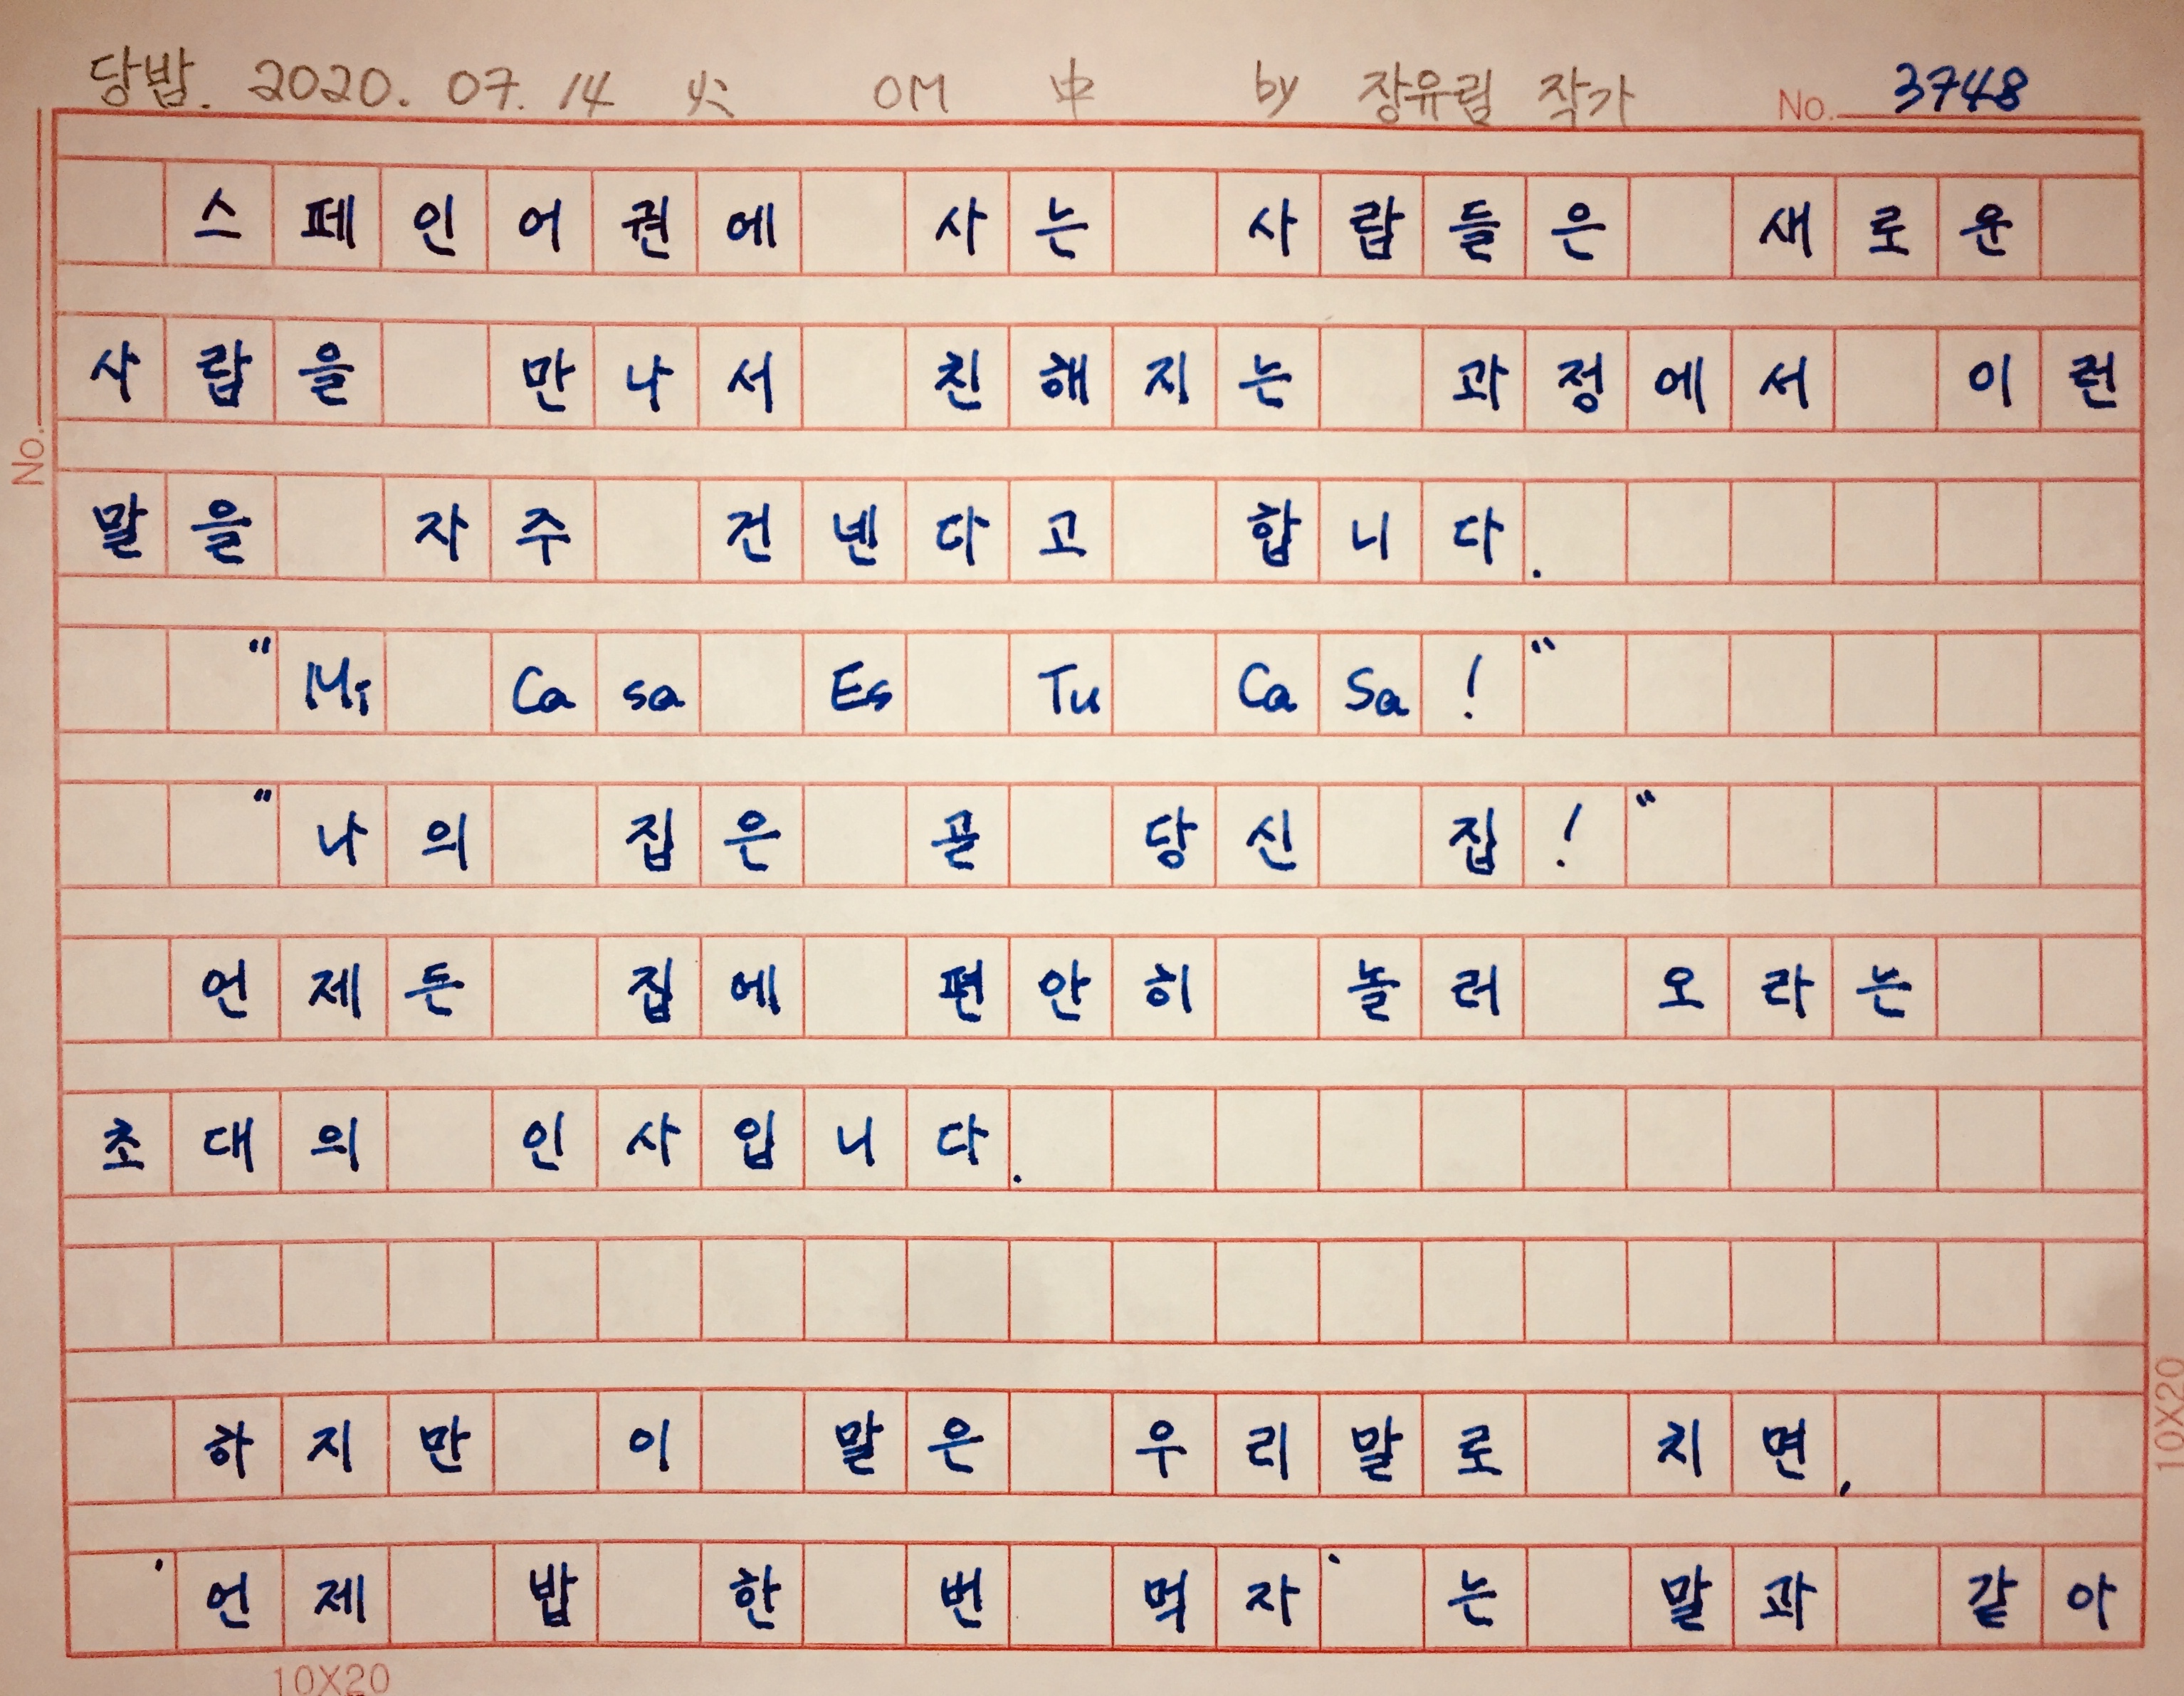 당밥. 2020. 07. 14 火 OM 中 by 장유림 작가 No. 3748
스페인어권에 사는 사람들은 새로운
사람을 만나서 친해지는 과정에서 이런
말을 자주 건넨다고 합니다.
"Mi Casa Es Tu CaSa!"
"나의 집은 곧 당신 집!"
언제든 집에 편안히 놀러 오라는
초대의 인사입니다.
하지만 이 말은 우리말로 치면,
'언제 밥 한 번 먹자'는 말과 같아
No.
10X20
10X20